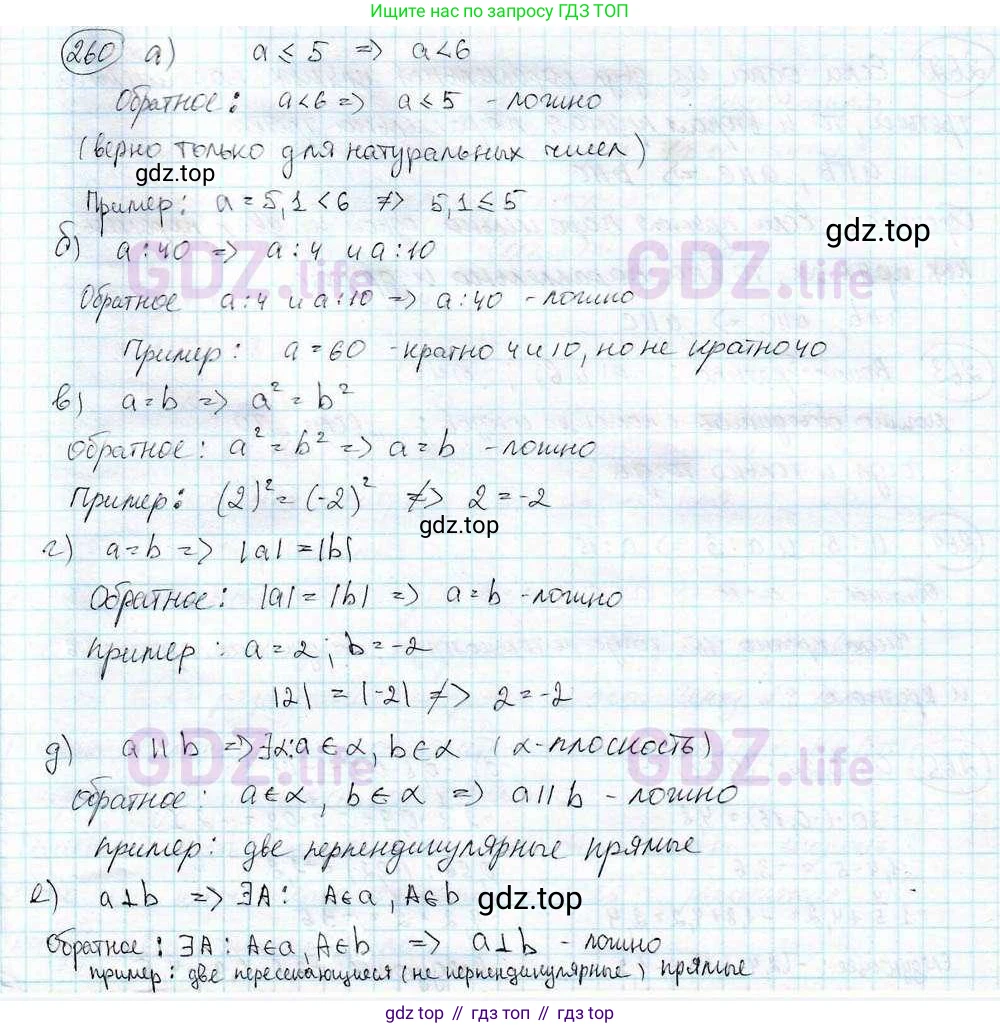 Ищите нас по запросу ГДЗ ТОП
260 а) a ≤ 5 => a < 6
Обратное: a < 6 => a ≤ 5 - ложно
(верно только для натуральных чисел)
gdz.top
Пример: a = 5,1 < 6 ≠> 5,1 ≤ 5
gdz.top
б) a : 40 => a : 4 и a : 10
GDZ.life GDZ.life
Обратное a : 4 и a : 10 => a : 40 - ложно
Пример: a = 60 - кратно 4 и 10, но не кратно 40
в) a = b => a² = b²
Обратное: a² = b² => a = b - ложно
Пример: (2)² = (-2)² ≠> 2 = -2
gdz.top
г) a = b => |a| = |b|
Обратное: |a| = |b| => a = b - ложно
Пример: a = 2; b = -2
|2| = |-2| ≠> 2 = -2
д) a || b => ∃α: a ∈ α, b ∈ α (α-плоскость)
GDZ.life GDZ.life
Обратное: a ∈ α, b ∈ α => a || b - ложно
Пример: две перпендикулярные прямые
е) a ⊥ b => ∃A: A ∈ a, A ∈ b
gdz.top
Обратное: ∃A: A ∈ a, A ∈ b => a ⊥ b - ложно
пример: две пересекающиеся (не перпендикулярные) прямые
gdz.top // gdz.top // gdz.top